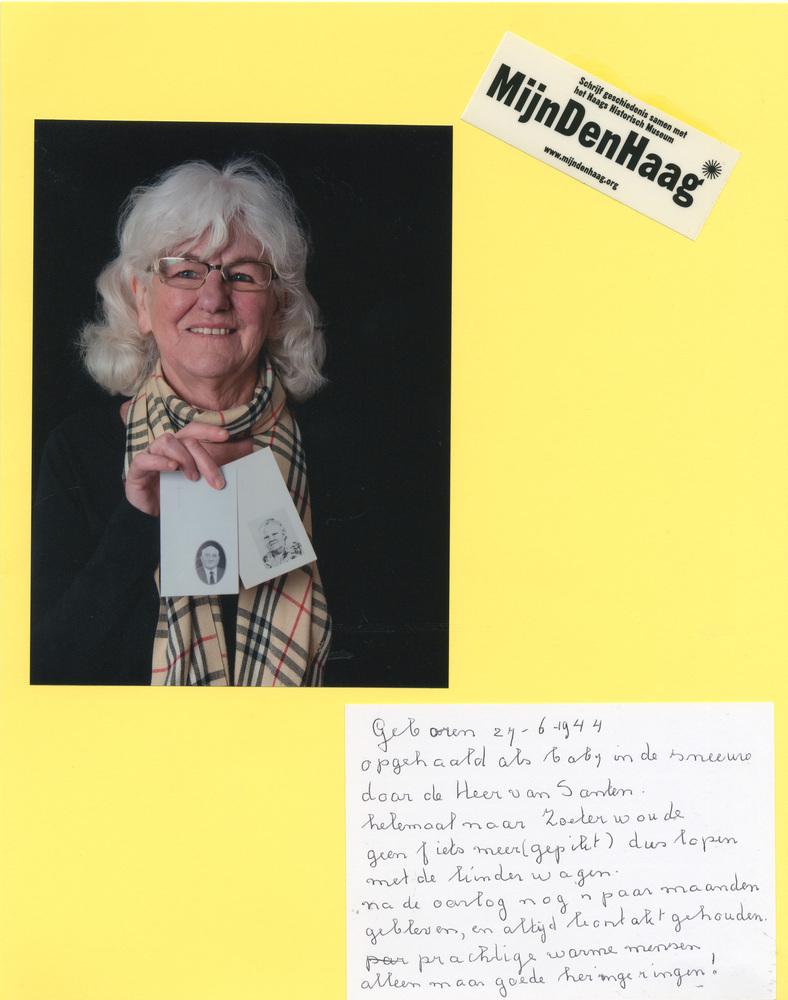 Schrijf geschiedenis samen met
het Haags Historisch Museum
MijnDenHaag
www.mijndenhaag.org
Geboren 27-6-1944
opgehaald als baby in de sneeuw
door de Heer van Santen.
helemaal naar Zoeterwoude
geen fiets meer (gepikt) dus lopen
met de kinderwagen.
na de oorlog nog 'n paar maanden
gebleven, en altijd kontakt gehouden.
par prachtige warme mensen
alleen maar goede herinneringen!